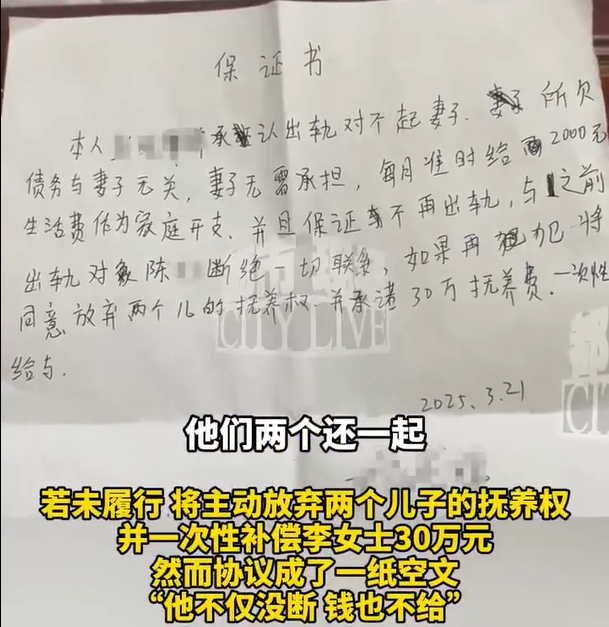 保证书
本人 承认出轨对不起妻子. 所欠
债务与妻子无关，妻子无需承担，每月准时给2000元
生活费作为家庭开支.并且保证不再出轨，与之前
出轨对象陈 断绝一切联系，如果再犯将
同意放弃两个儿的抚养权.并承诺30万抚养费.一次性
给与.
2025.3.21
CITY LIVE
都
CI
他们两个还一起
若未履行 将主动放弃两个儿子的抚养权
并一次性补偿李女士30万元
然而协议成了一纸空文
“他不仅没断 钱也不给”